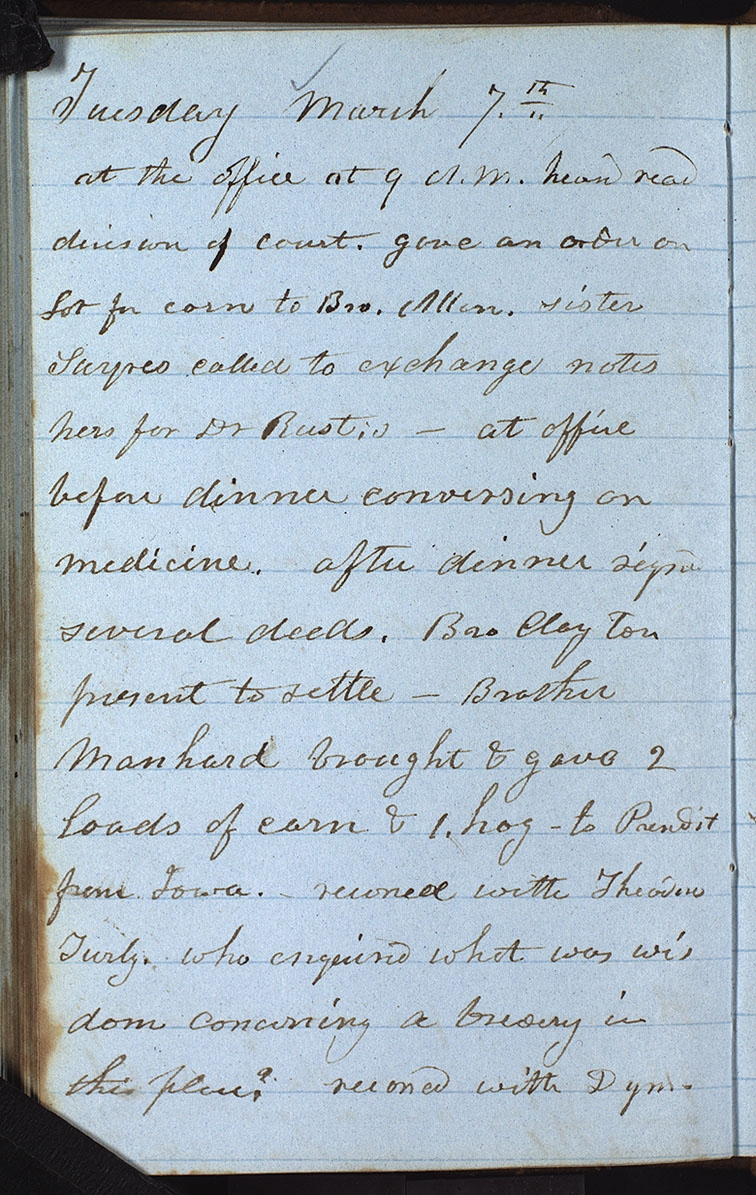 Tuesday March 7.th
at the office at 9 A.M. heard read
decision of court. gave an order on
lot for corn to Bro. Allen. sister
called to exchange notes
hers for Dr — at office
before dinner conversing on
medicine. after dinner
several deeds. Bro Clayton
present to settle — Brother
Manhard brought & gave 2
loads of corn & 1. hog - to
from Iowa. - reconed with Theodore
Turly. who enquired what was wis
dom concerning a brewery in
this place? reconed with